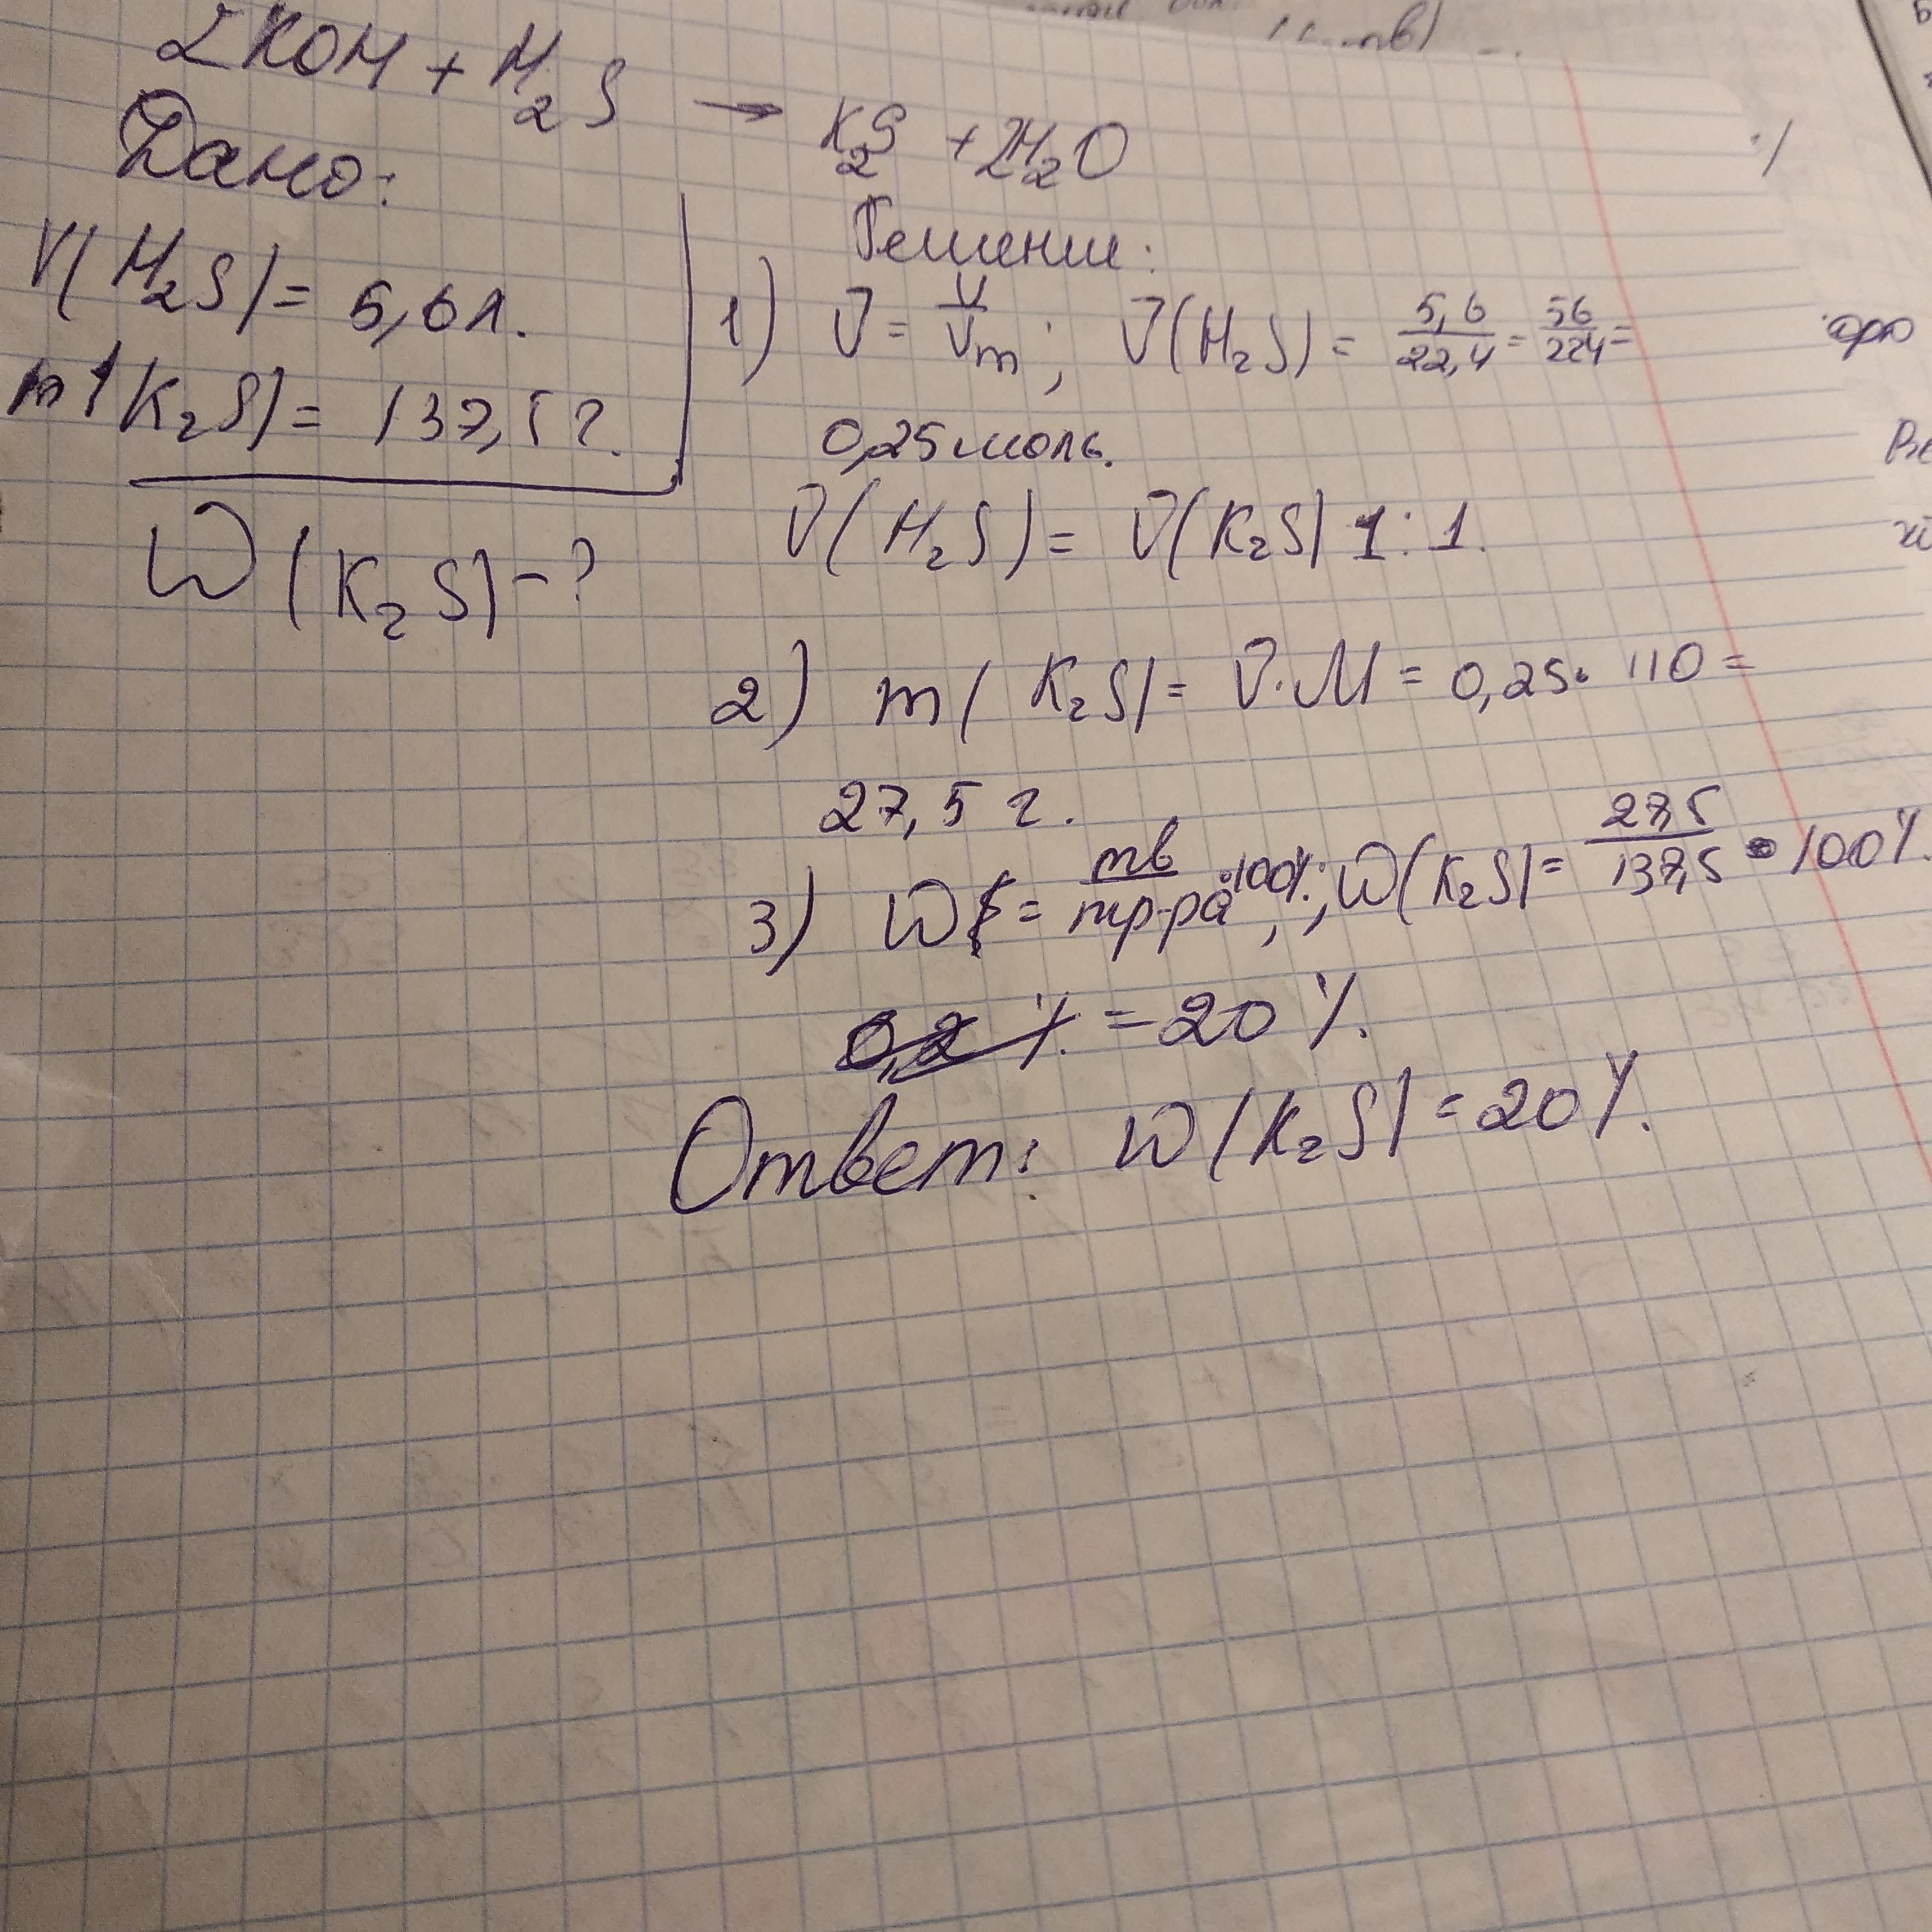 2KOH + H₂S → K₂S + 2H₂O
Дано:
V(H₂S) = 5,6 л.
m(K₂S) = 137,5 г.
W(K₂S) - ?
Решение:
1) ν = V/Vm; ν(H₂S) = 5,6/22,4 = 56/224 =
0,25 моль.
ν(H₂S) = ν(K₂S) 1:1.
2) m(K₂S) = ν·M = 0,25 · 110 =
27,5 г.
3) W = mв/mр-ра ·100%; W(K₂S) = 27,5/137,5 · 100%
= 20%.
Ответ: W(K₂S) = 20%.